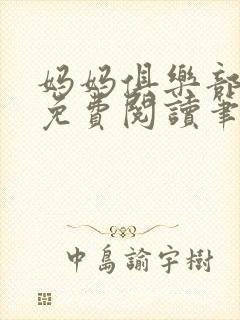 妈妈俱樂部
免費閱讀筆
中島諭宇樹